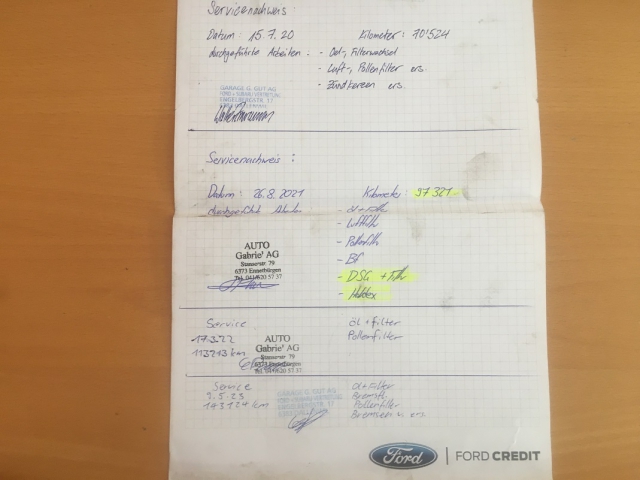 Servicenachweis:
Datum: 15.7.20 Kilometer: 70'524
durchgeführte Arbeiten: - Oel-, Filterwechsel
- Luft-, Pollenfilter ers.
- Zündkerzen ers.
GARAGE G. GUT AG
Servicenachweis:
Datum: 26.8.2021 Kilometer: 97'321
- Luftfilter
- Pollenfilter
- BF
AUTO
Gabriel AG
Stanserstr. 79
6373 Ennetbürgen
Tel. 041/620 57 37
- DSG + Filter
- Haldex
Service Öl + filter
17.3.22 Pollenfilter
113213 km
AUTO
Gabriel AG
Stanserstr. 79
6373 Ennetbürgen
Tel. 041/620 57 37
Service Öl + filter
2.5.23 Bremsfl.
143124 km Pollenfilter
GARAGE G. GUT AG
Bremsen ers.
Ford FORD CREDIT